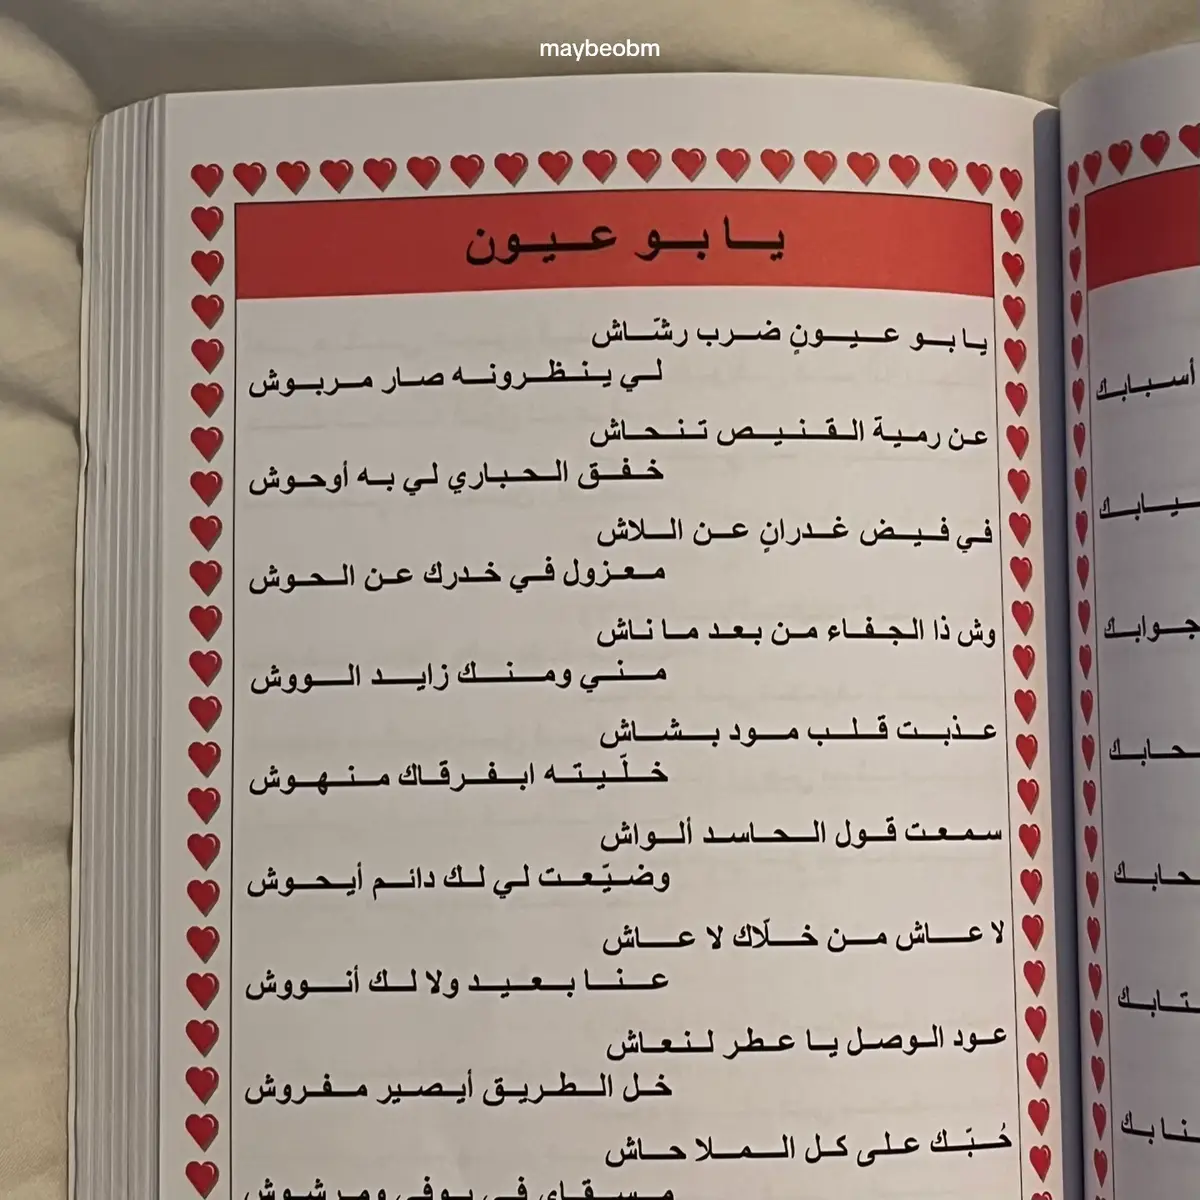 maybeobm
يا بو عيون
يا بو عيونٍ ضرب رشّاش
لي ينظرونه صار مربوش
عن رمية القنيص تنحاش
خفق الحباري لي به أوحوش
في فيض غدرانٍ عن اللاش
معزول في خدرك عن الحوش
وش ذا الجفاء من بعد ما ناش
مني ومنك زايد الووش
عذبت قلب مود بشاش
خلّيته ابفرقاك منهوش
سمعت قول الحاسد ألواش
وضيّعت لي لك دانم أيحوش
لا عاش من خلّاك لا عاش
عنا بعيد ولا لك أنووش
عود الوصل يا عطر لنعاش
خل الطريق أيصير مفروش
حُبّك على كل الملا حاش
مسقاي في يوفي ومرشوش
أسبابك
جوابك